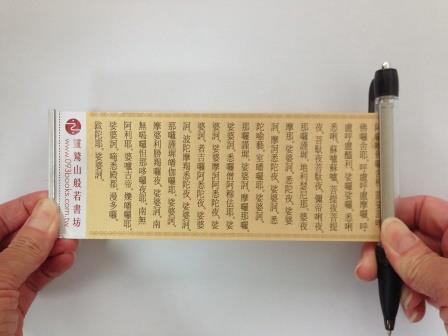 佛囉舍耶。呼嚧呼嚧摩囉。呼
嚧呼嚧醯利。娑囉娑囉。悉唎
悉唎。蘇嚧蘇嚧。菩提夜菩提
夜。菩馱夜菩馱夜。彌帝唎夜。
那囉謹墀。地利瑟尼那。婆夜
摩那。娑婆訶。悉陀夜。娑婆
訶。摩訶悉陀夜。娑婆訶。悉
陀喻藝。室皤囉耶。娑婆訶。
那囉謹墀。娑婆訶。摩囉那囉。
娑婆訶。悉囉僧阿穆佉耶。娑
婆訶。娑婆摩訶阿悉陀夜。娑
婆訶。者吉囉阿悉陀夜。娑婆
訶。波陀摩羯悉陀夜。娑婆訶。
那囉謹墀皤伽囉耶。娑婆訶。
摩婆利勝羯囉夜。娑婆訶。南
無喝囉怛那哆囉夜耶。南無
阿利耶。婆嚧吉帝。爍皤囉耶。
娑婆訶。唵悉殿都。漫多囉。
跋陀耶。娑婆訶。
靈鷲山般若書坊
www.093books.com.tw